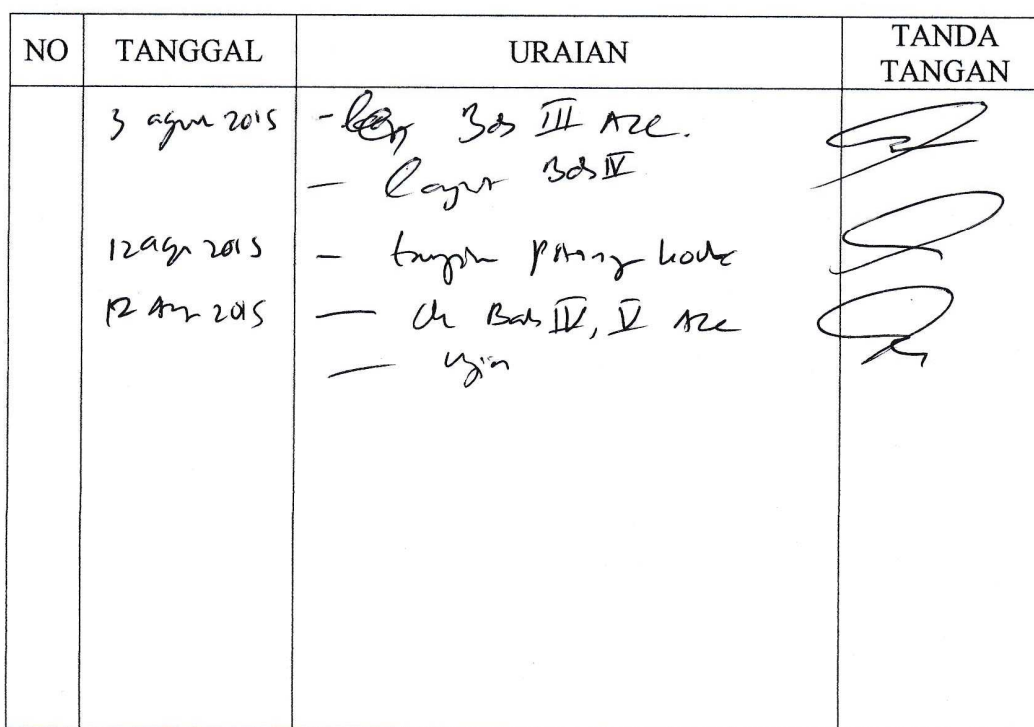 NO TANGGAL URAIAN TANDA TANGAN
3 agus 2015 - Bab III Acc.
- Lanjut Bab IV
12 agu 2015 -
12 Agu 2015 - Bab IV, V Acc
- Ujian